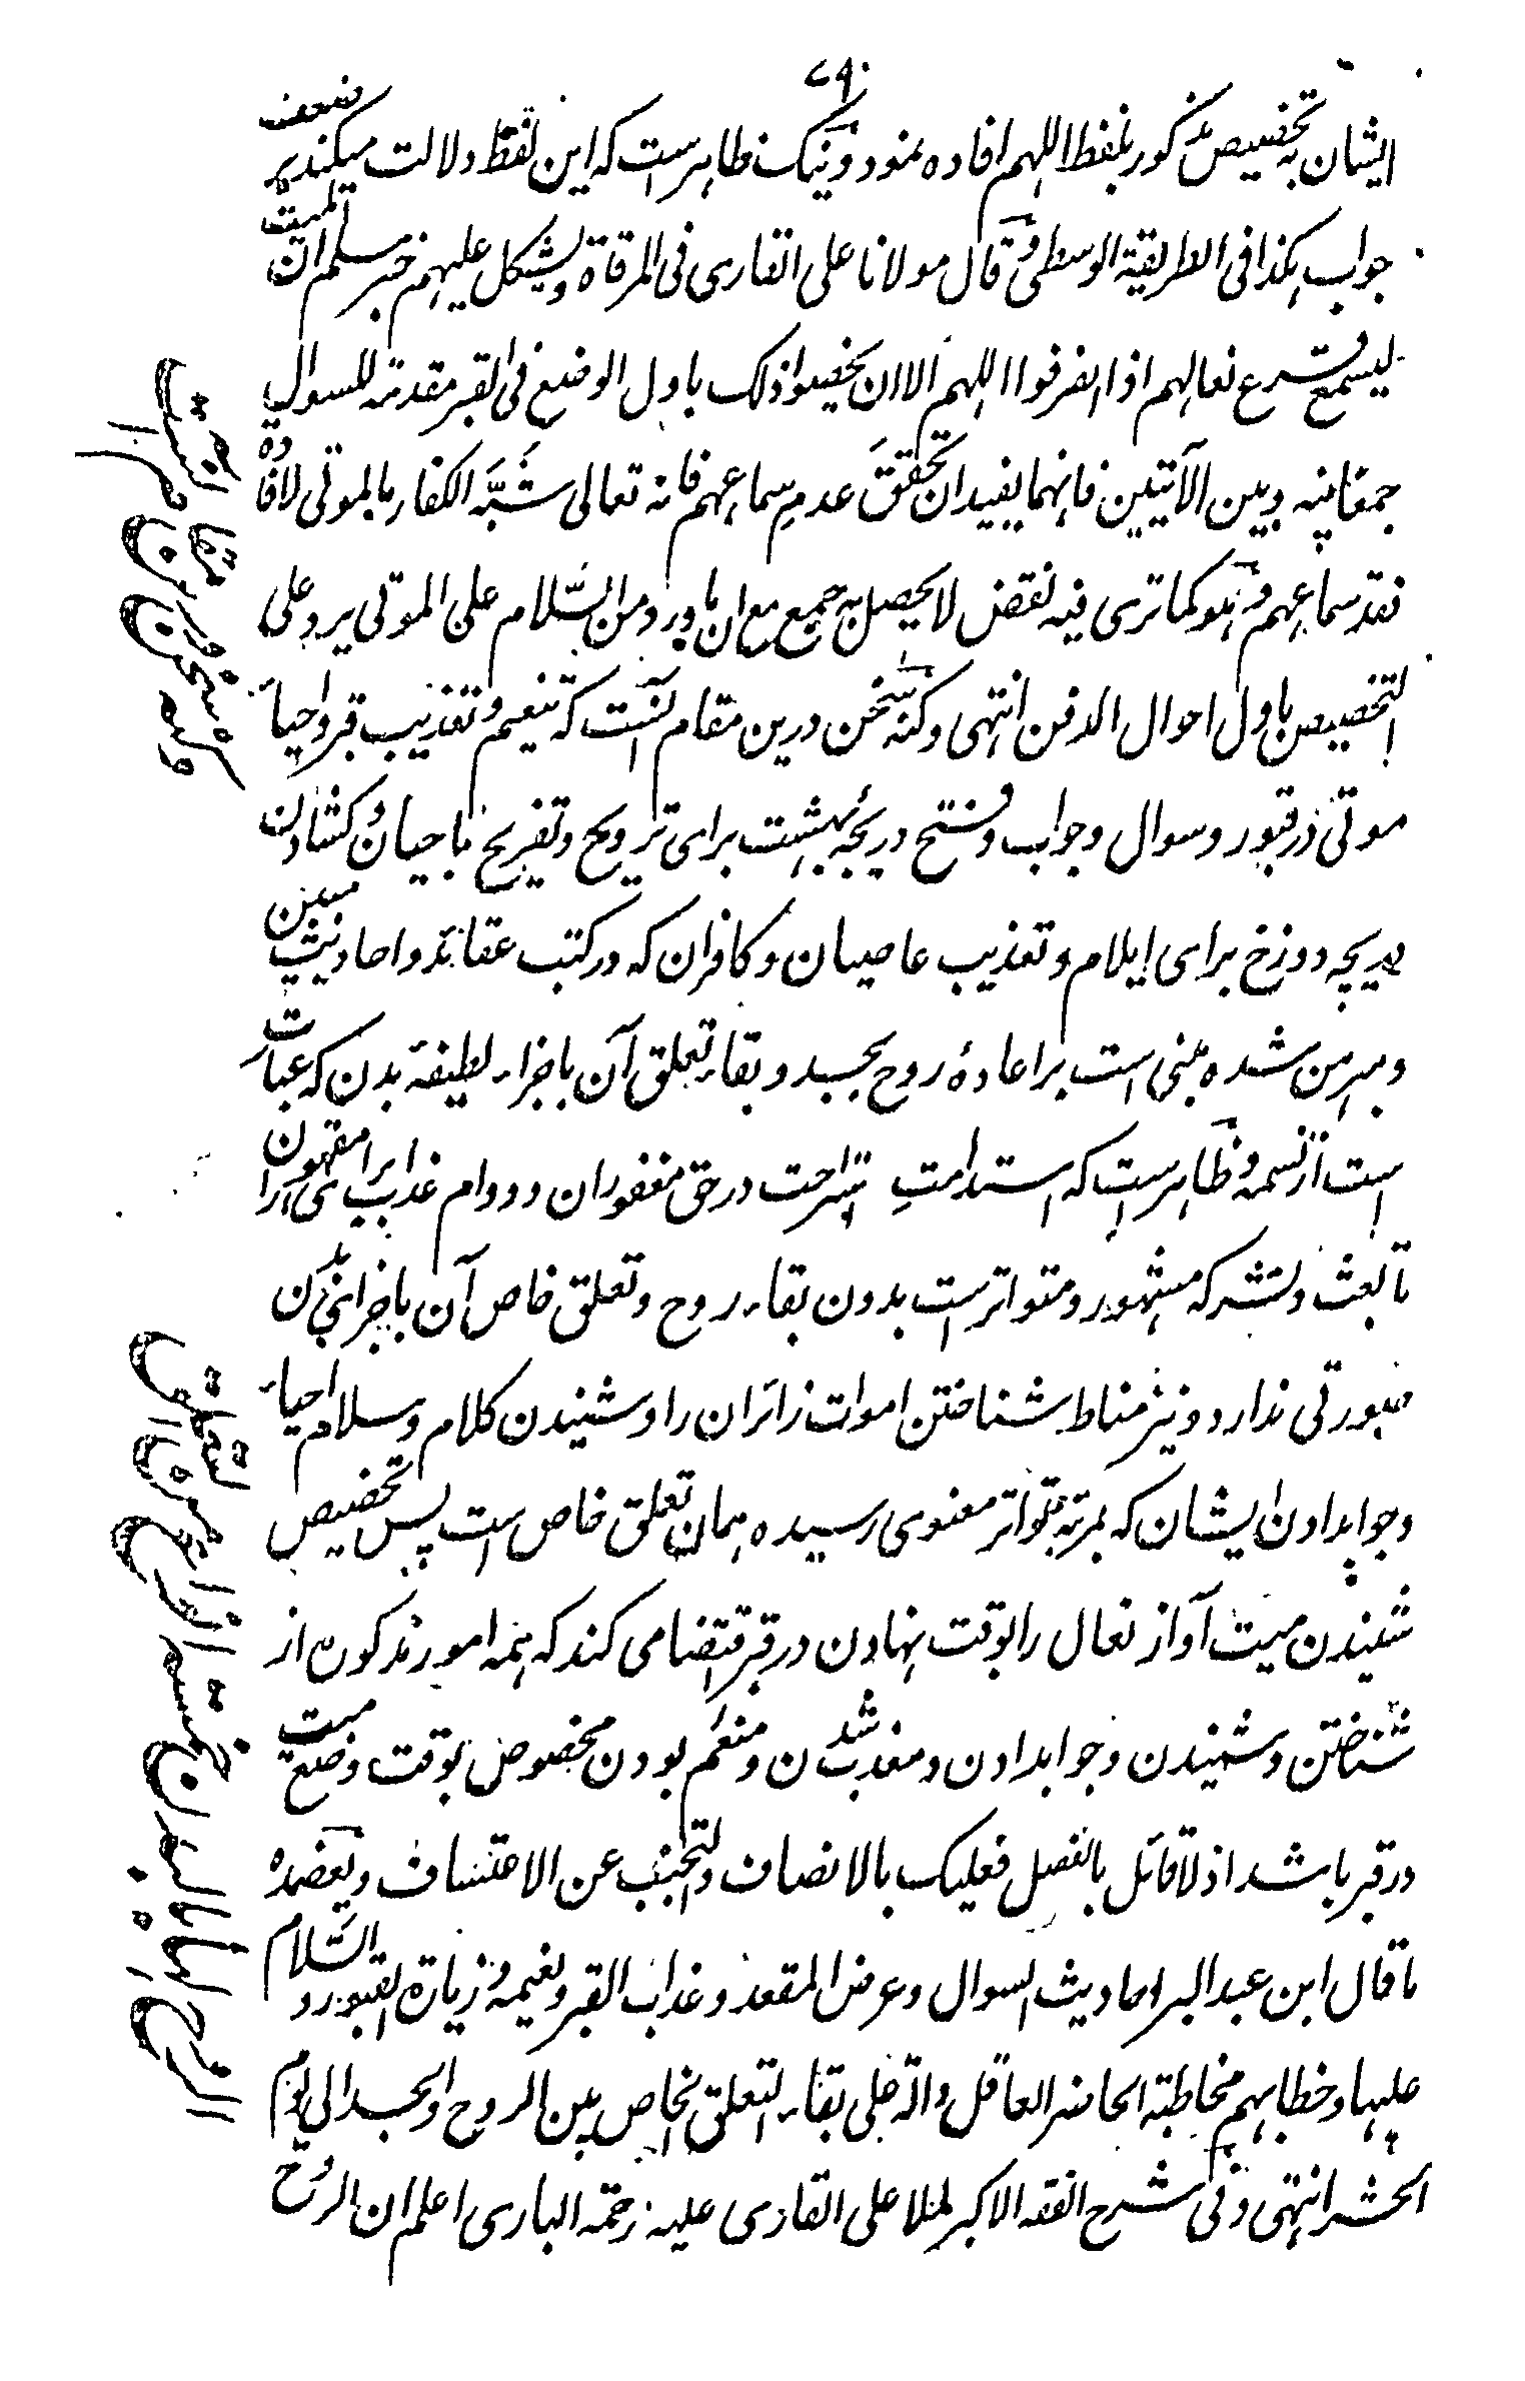 ایشان به تخصیص مذکور بلفظ اللهم افاده نمود و نیک ظاهر است که این لفظ دلالت میکند بر ضعف
جواب هکذا فی الطریقة الوسطی و قال مولانا علی القاری فی المرقاة و یشکل علیهم خبر مسلم ان المیت
لیسمع قرع نعالهم اذا انصرفوا اللهم الا ان یخصوا ذلک باول الوضع فی القبر مقدمة للسوال
جمعا بینه و بین الآیتین فانهما یفیدان تحقق عدم سماعهم فانه تعالی شبَّه الکفار بالموتی لافادة
تعذر سماعهم و هو کما تری فیه نقض لا یحصل به جمع مع ان ما ورد من السَّلام علی الموتی یرد علی
التخصیص باول احوال الدفن انتهی و کنه سخن درین مقام آنست که تنعیم و تعذیب قبر و احیاء
موتی در قبور و سوال و جواب و فتح دریچهٔ بهشت برای ترویح و تفریح ناجیان و کشادن
دریچه دوزخ برای ایلام و تعذیب عاصیان و کافران که در کتب عقائد و احادیث مبین
و مبرهن شده مبنی است بر اعادهٔ روح بجسد و بقاء تعلق آن باجزاء لطیفهٔ بدن که عبارت
است از نسمه و ظاهر است که استدامتِ استراحت در حق مغفوران و دوام عذاب برای مقهوران
تا بعث و نشر که مشهور و متواتر است بدون بقاء روح و تعلق خاص آن باجزای بدن
صورتی ندارد و نیز مناط شناختن اموات زائران را و شنیدن کلام و سلام احیاء
و جواب دادن ایشان که بمرتبهٔ تواتر معنوی رسیده همان تعلق خاص است پس تخصیص
شنیدن میت آواز نعال را بوقت نهادن در قبر اقتضا می کند که همه امور مذکوره از
شناختن و شنیدن و جواب دادن و معذب شدن و منعم بودن مخصوص بوقت وضع میت
در قبر باشد اذ لا قائل بالفصل فعلیک بالانصاف و التجنب عن الاعتساف و یعضده
ما قال ابن عبد البر احادیث السوال و عرض المقعد و عذاب القبر و نعیمه و زیارة القبور و السَّلام
علیها و خطابهم مخاطبة الحاضر العاقل دالة علی بقاء التعلق الخاص بین الروح و الجسد الی یوم
الحشر انتهی و فی شرح الفقه الاکبر لملا علی القاری علیه رحمة الباری اعلم ان الروح